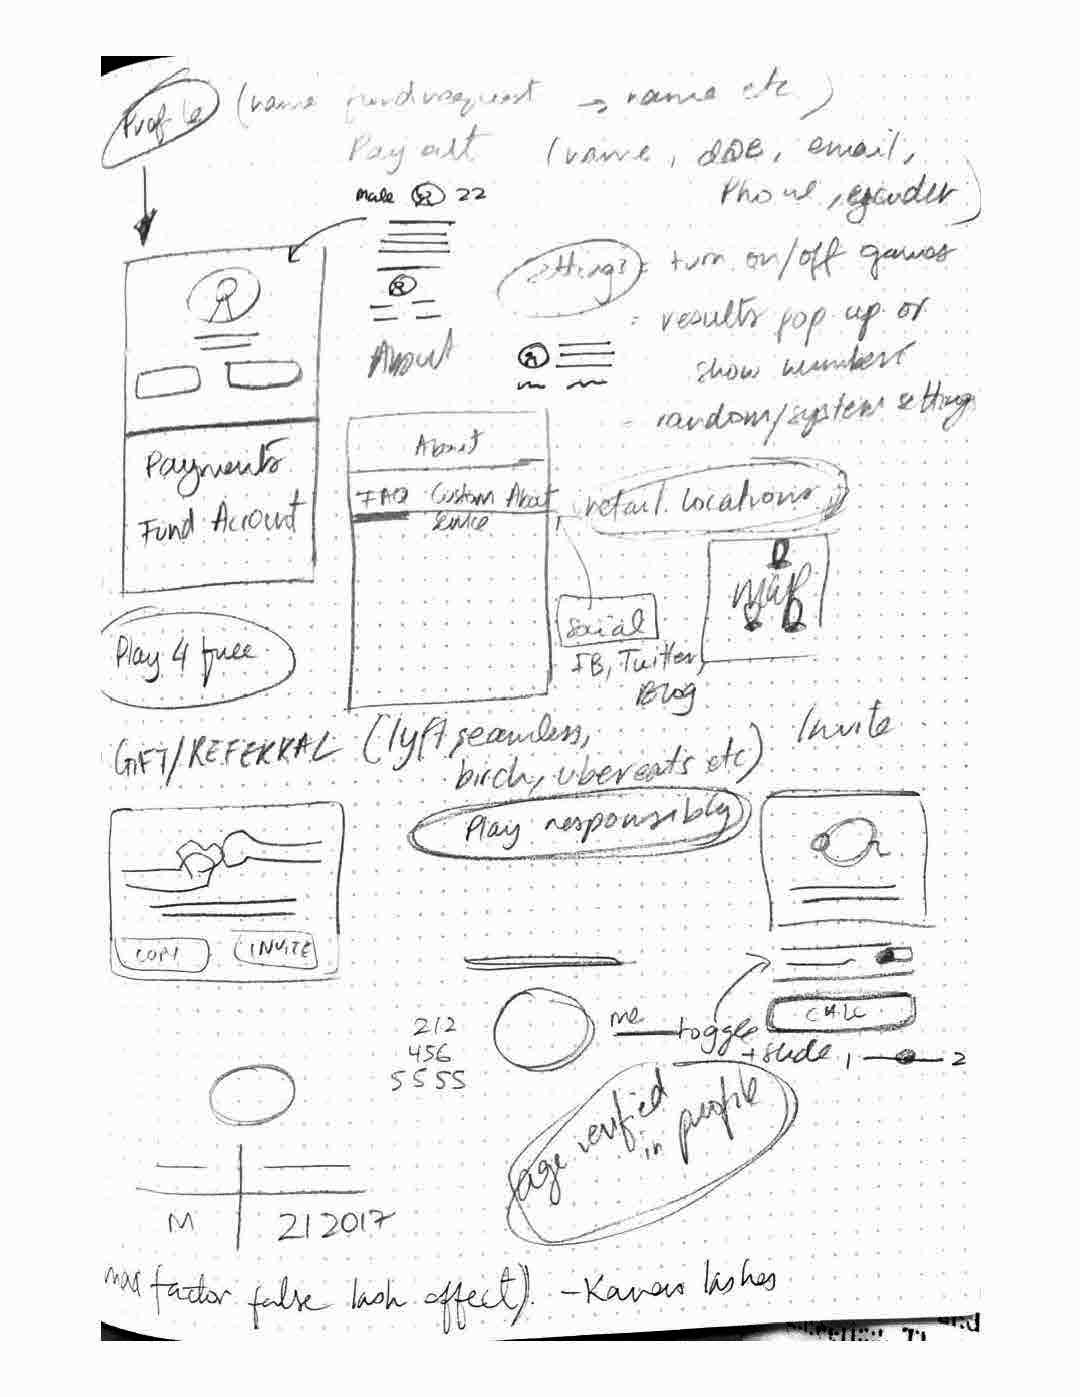 Profile (name fund request → name etc)
Pay out (name, DOB, email,
Phone, gender)
male 22
settings = turn on/off games
= results pop up or
show numbers
= random/system setting
About
About
FAQ Custom About
Payments
Fund Account
retail locations
map
Social
FB, Twitter,
Blog
Play 4 free
GIFT/REFERRAL (lyft, seamless,
birch, ubereats etc)
Invite
Play responsibly
COPY INVITE
212
456
5555
me
toggle
+ slide 1 2
age verified
in profile
M 212017
max factor false lash effect) -
lashes